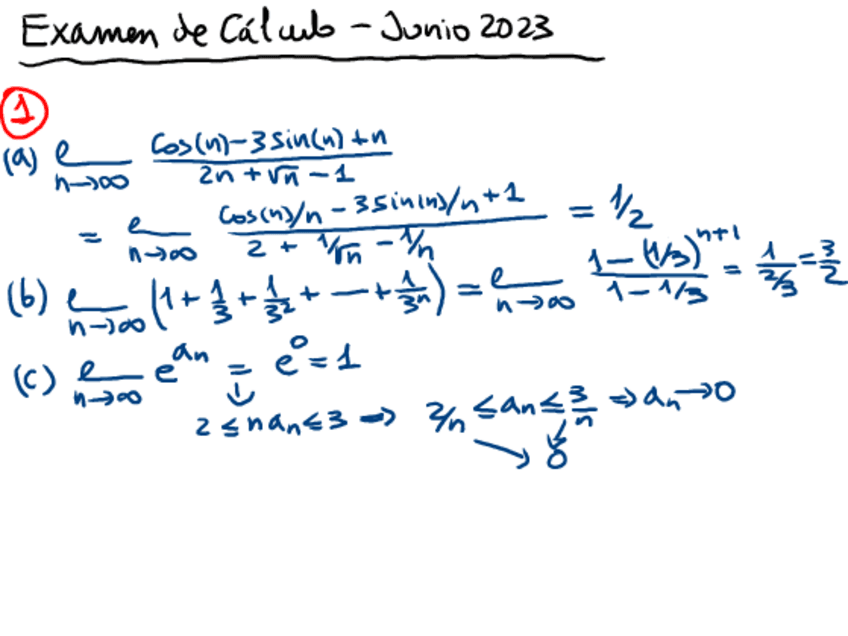 Examen de Cálculo – Junio 2023
1
(a) l___ n→∞ (cos(n) – 3 sin(n) + n) / (2n + √n – 1)
= l___ n→∞ (cos(n)/n – 3 sin(n)/n + 1) / (2 + 1/√n – 1/n) = 1/2
(b) l___ n→∞ (1 + 1/3 + 1/3² + — + 1/3ⁿ) = l___ n→∞ (1 – (1/3)ⁿ⁺¹) / (1 – 1/3) = 1/(2/3) = 3/2
(c) l___ n→∞ e^(aₙ) = e⁰ = 1
↓
2 ≤ n aₙ ≤ 3 → 2/n ≤ aₙ ≤ 3/n ⇒ aₙ → 0
↘ ↙
0